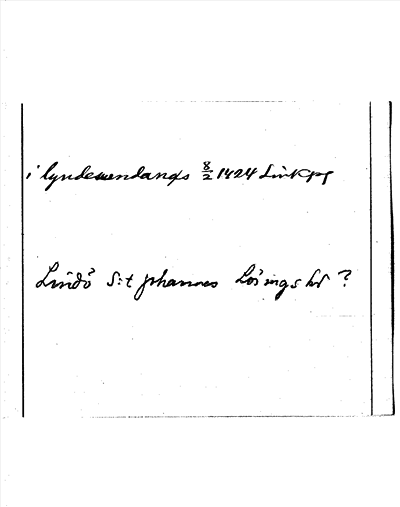 i lyndewendangs 8/2 1424 Linkpg
Lindö S:t Johannes Lösings hd ?